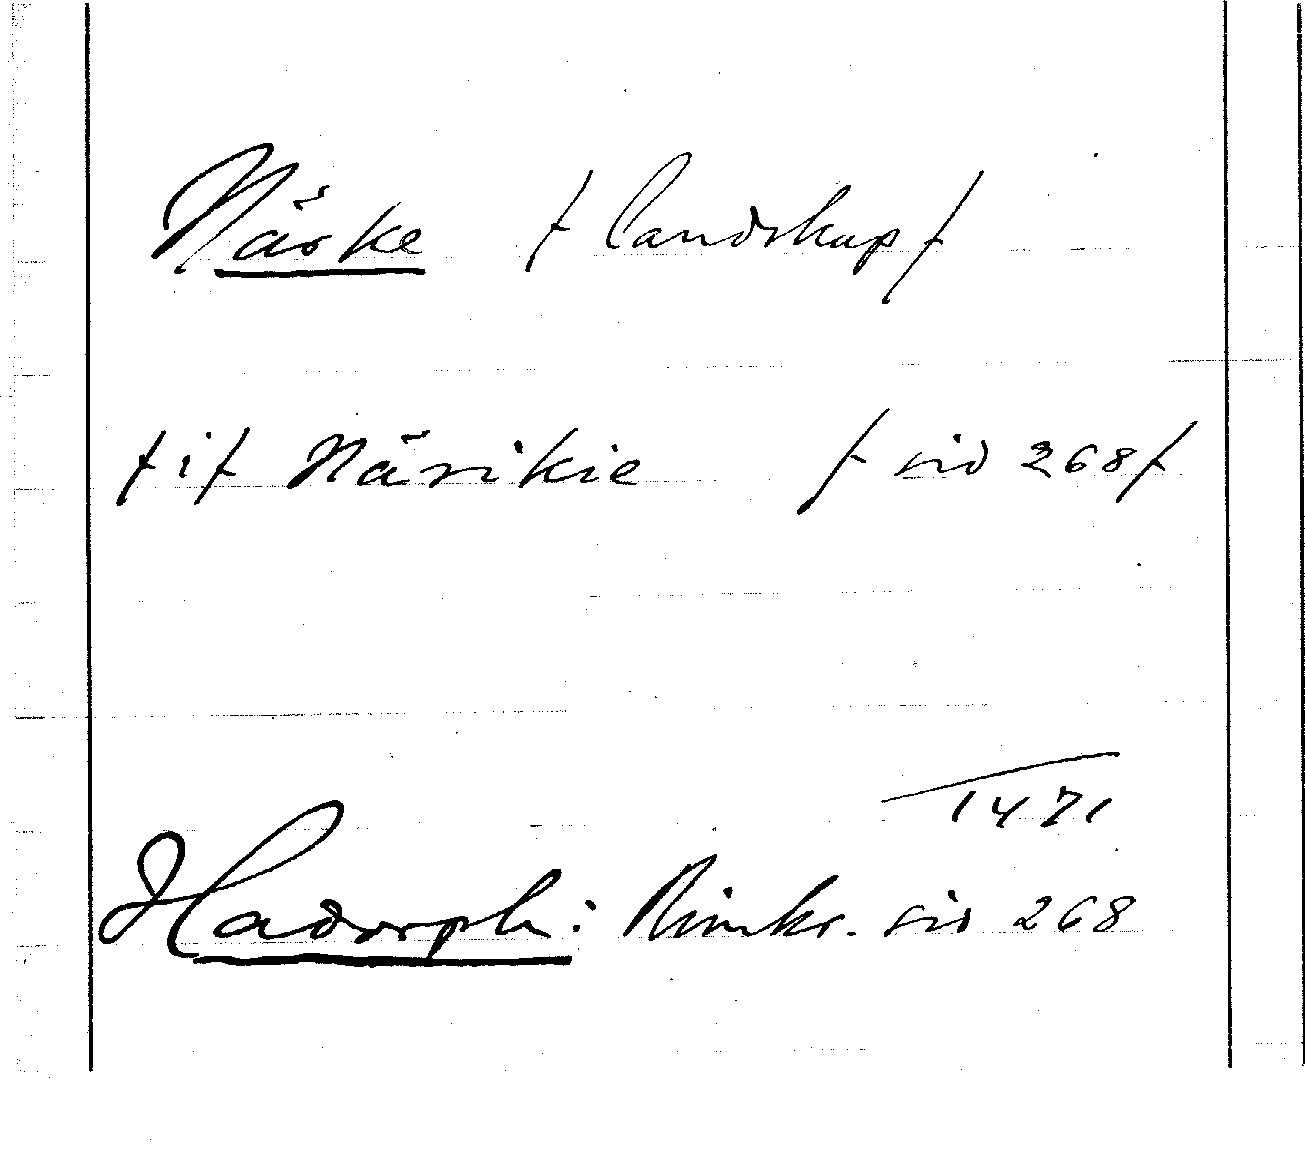 Närke / landskap /
/ i / Närikie / sid 268 /
1471
Hadorph: Rimkr. sid 268